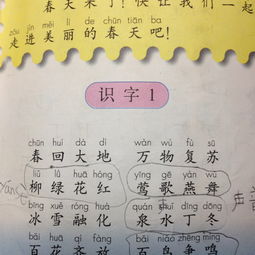 春天来了！快让我们一起
zǒu jìn měi lì de chūn tiān ba
走进美丽的春天吧！
识字1
chūn huí dà dì wàn wù fù sū
春回大地 万物复苏
liǔ lǜ huā hóng yīng gē yàn wǔ
柳绿花红 莺歌燕舞
bīng xuě róng huà quán shuǐ dīng dōng
冰雪融化 泉水丁冬
bǎi huā qí fàng bǎi niǎo zhēng míng
百花齐放 百鸟争鸣